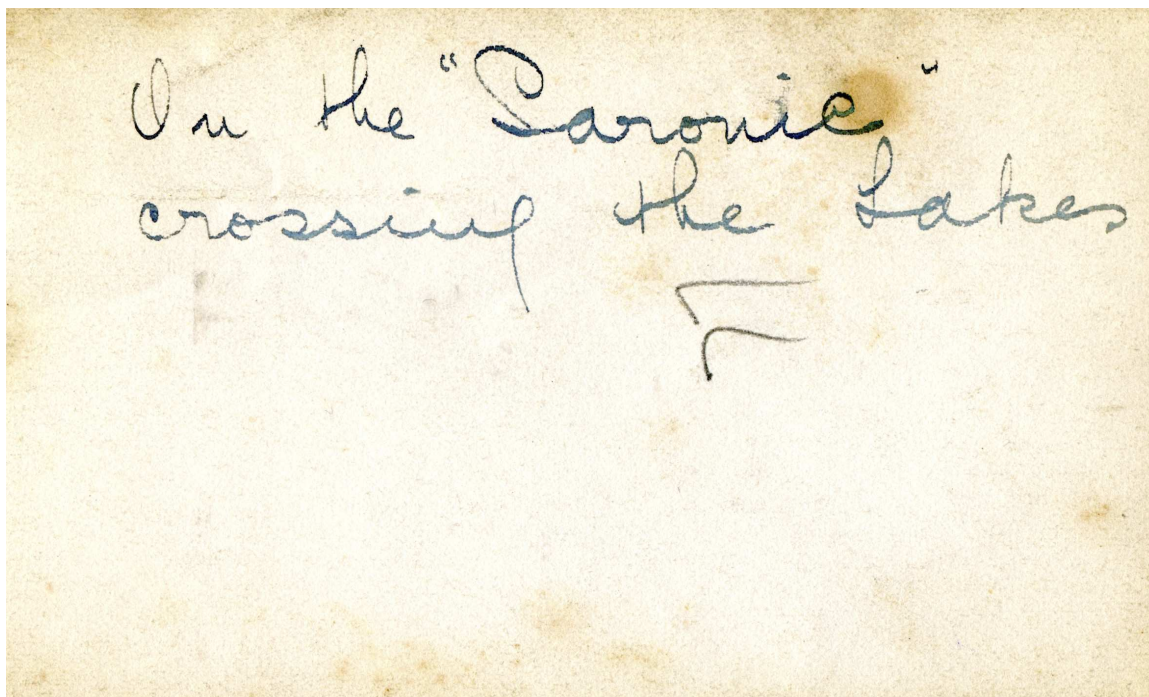 On the "Saronic"
crossing the Lakes